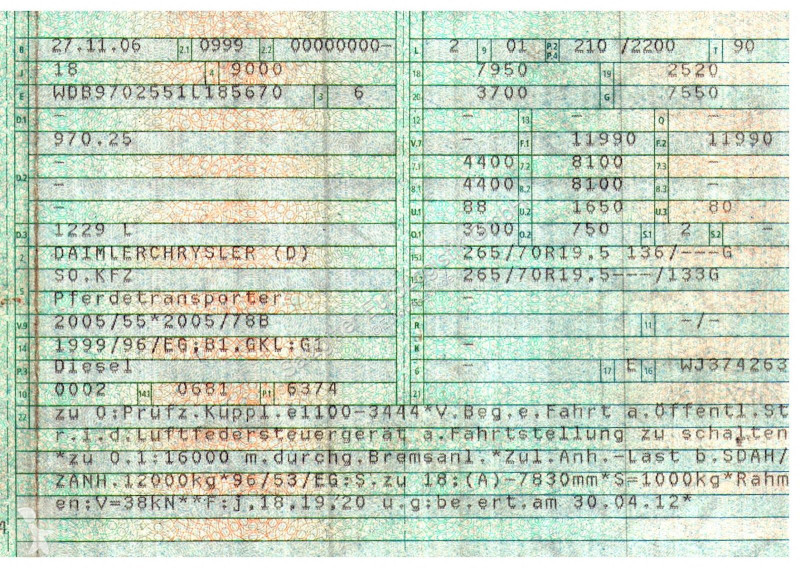 B 27.11.06 2.1 0999 2.2 00000000- L 2 9 01 P.2 P.4 210 /2200 T 90
J 18 4 9000 18 7950 19 2520
E WDB9702551L185670 3 6 20 3700 G 7550
D.1 - 12 - 13 - Q -
970.25 V.7 - F.1 11990 F.2 11990
D.2 - 7.1 4400 7.2 8100 7.3 -
- 8.1 4400 8.2 8100 8.3 -
- U.1 88 U.2 1650 U.3 80
D.3 1229 L O.1 3500 O.2 750 S.1 2 S.2 -
2 DAIMLERCHRYSLER (D) 15.1 265/70R19,5 136/---G
SO.KFZ 15.2 265/70R19,5---/133G
5 Pferdetransporter 15.3 -
V.9 2005/55*2005/78B R - 11 -/-
14 1999/96/EG;B1,GKL:G1 K -
P.3 Diesel 6 - 17 E 16 WJ374263
10 0002 14.1 0681 P.1 6374 21
22 zu O:Prüfz.Kuppl.e1100-3444*V.Beg.e.Fahrt a.öffentl.St
r.i.d.Luftfedersteuergerät a.Fahrtstellung zu schalten
*zu O.1:16000 m.durchg.Bremsanl.*Zul.Anh.-Last b.SDAH/
ZANH.12000kg*96/53/EG:S.zu 18:(A)-7830mm*S=1000kg*Rahm
en:V=38KN**F:j,18,19,20 u.g:be.ert.am 30.04.12*